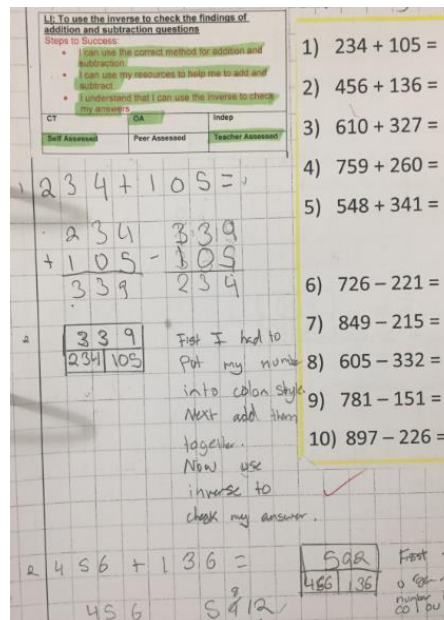 LI: To use the inverse to check the findings of
addition and subtraction questions
Steps to Success:
• I can use the correct method for addition and
subtraction.
• I can use my resources to help me to add and
subtract
• I understand that I can use the inverse to check
my answers
CT GA Indep
Self Assessed Peer Assessed Teacher Assessed
1) 234 + 105 =
2) 456 + 136 =
3) 610 + 327 =
4) 759 + 260 =
5) 548 + 341 =
6) 726 – 221 =
7) 849 – 215 =
8) 605 – 332 =
9) 781 – 151 =
10) 897 – 226 =
1 234 + 105 =
234 339
+ 105 - 105
339 234
2 339
234 105
First I had to
Put my numbe
into colon style.
Next add them
together.
Now use
inverse to
check my answer.
2 456 + 136 =
592
456 136
First
456